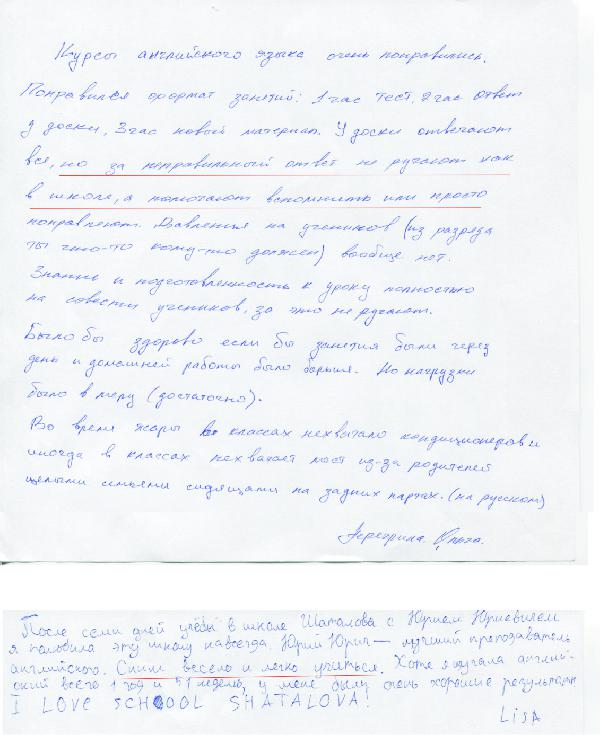 Курсы английского языка очень понравились.
Понравился формат занятий: 1 час тест, 2 час ответ
у доски, 3 час новый материал. У доски отвечают
все, но за неправильный ответ не ругают как
в школе, а помогают вспомнить или просто
поправляют. Давленья на учеников (из разряда
ты что-то кому-то должен) вообще нет.
Знания и подготовленность к уроку полностью
на совести учеников, за это не ругают.
Было бы здорово если бы занятия были через
день и домашней работы было больше. Но нагрузки
было в меру (достаточно).
Во время жары в классах нехватало кондиционеров и
иногда в классах нехватает мест из-за родителей
целыми семьями сидящами на задних партах. (на русском)
Ольга.
После семи дней учёбы в школе Шаталова с Юрием Юриевичем
я полюбила эту школу навсегда. Юрий Юрич — лучший преподаватель
английского. С ним весело и легко учиться. Хотя я изучала англий-
ский всего 1 год и 1 неделю, у меня были очень хорошие результаты
I LOVE SCHOOL SHATALOVA!
LiSA